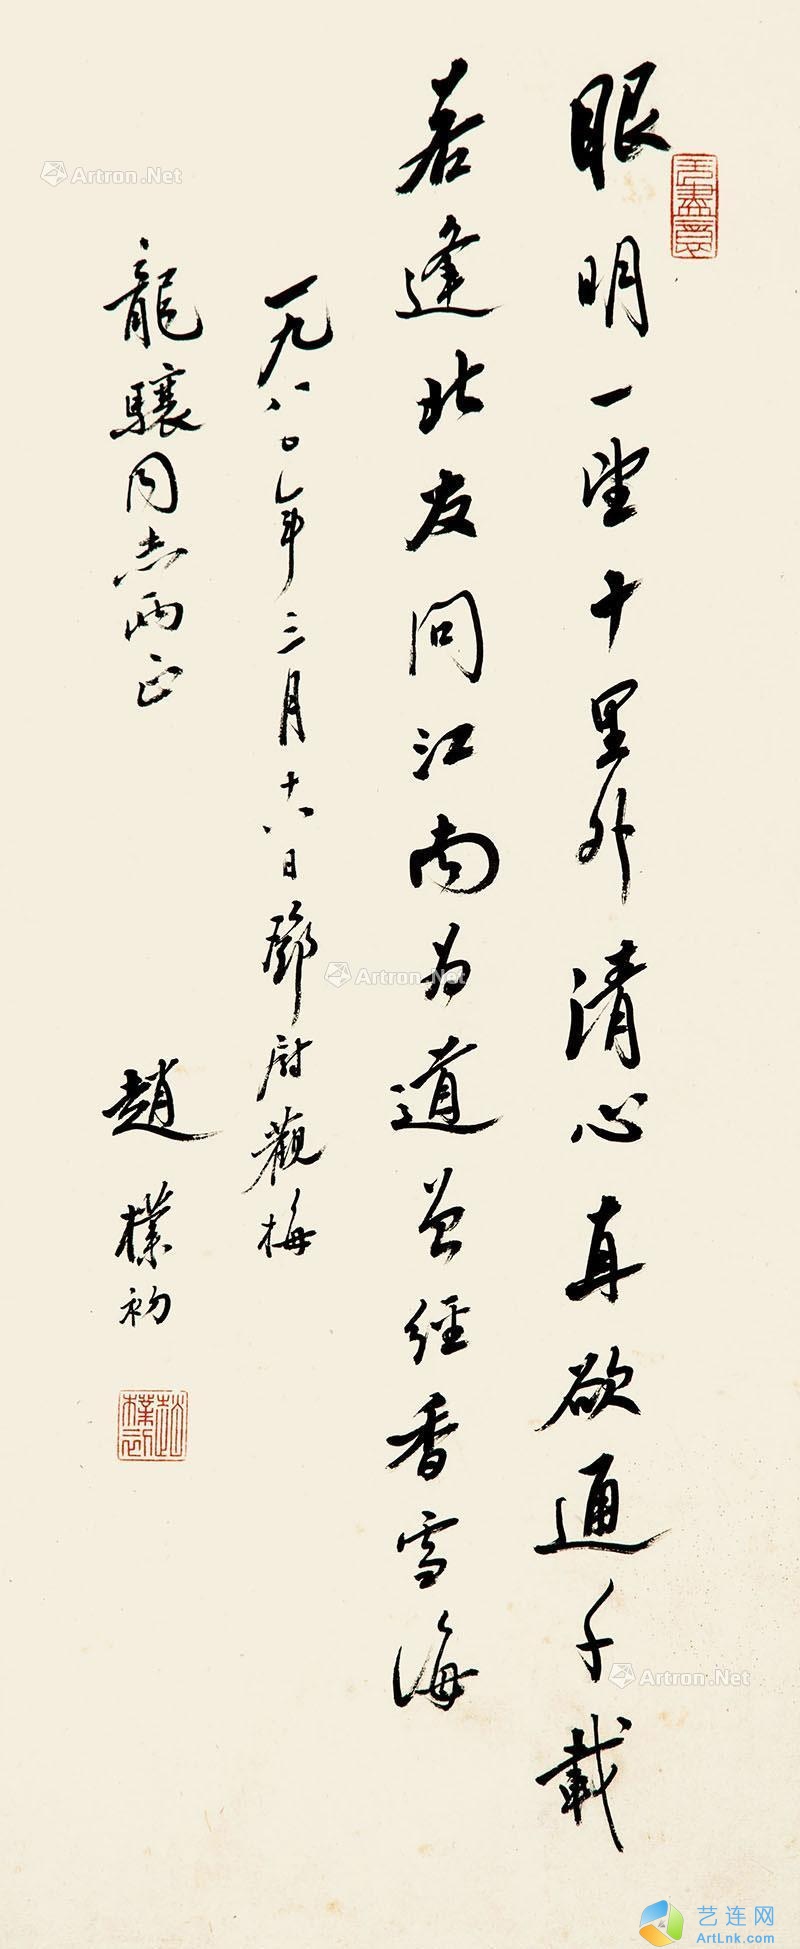 眼明一望十里外清心真欲通千載
若逢北友問江南為道曾經香雪海
一九八〇年三月十八日鄧尉觀梅
龍驤同志兩正
趙樸初
无盡意
趙樸初
Artron.Net
Artron.Net
Artron.Net
艺连网
ArtLnk.com